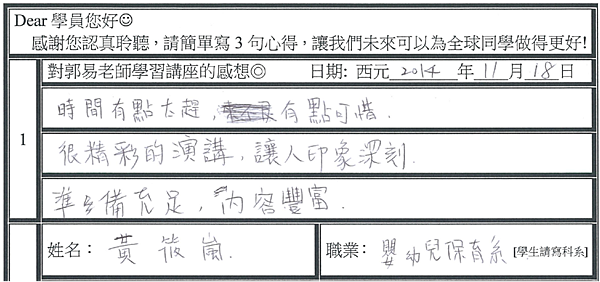 Dear 學員您好☺
感謝您認真聆聽，請簡單寫 3 句心得，讓我們未來可以為全球同學做得更好!
對郭易老師學習講座的感想◎ 日期: 西元 2014 年 11 月 18 日
1
時間有點太趕，有點可惜.
很精彩的演講，讓人印象深刻.
準備充足，內容豐富.
姓名： 黃筱嵐. 職業： 嬰幼兒保育系 [學生請寫科系]